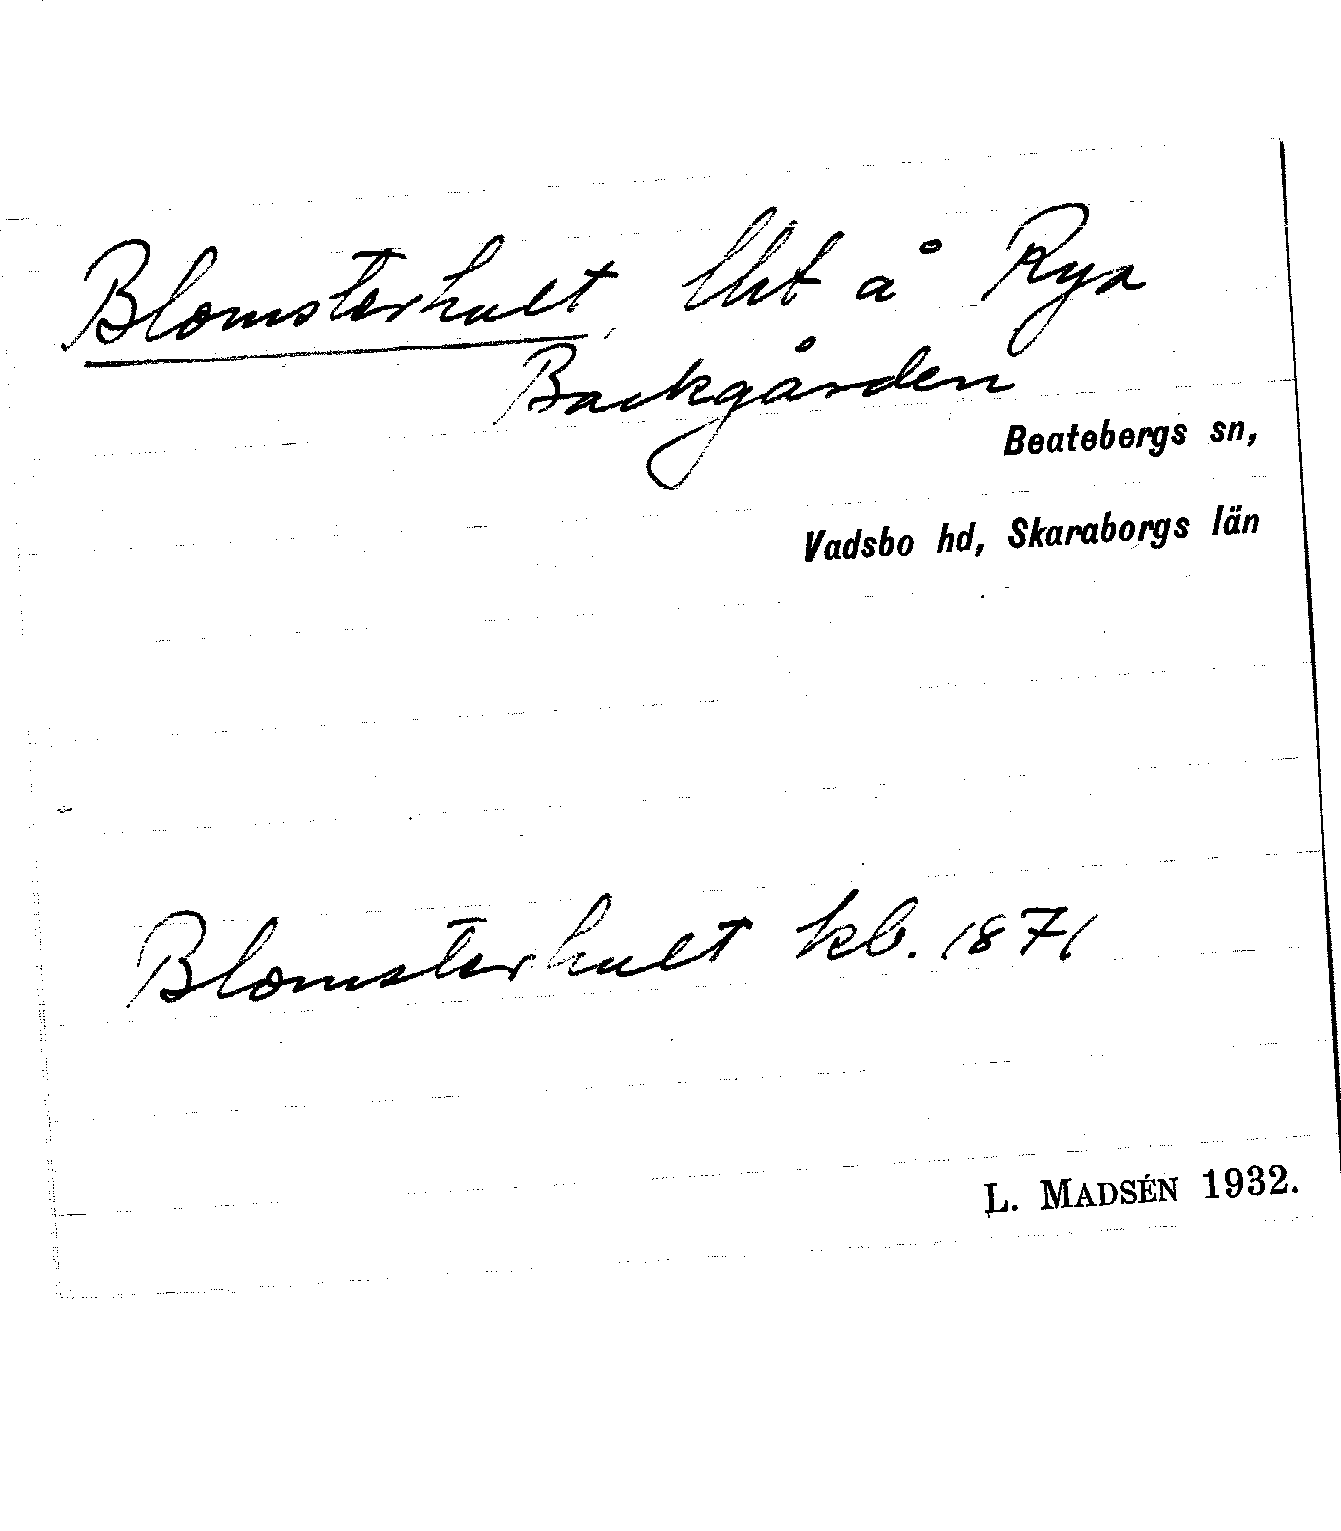 Blomsterhult, lht å Rya
Backgården
Beatebergs sn,
Vadsbo hd, Skaraborgs län
Blomsterhult kb. 1871
L. MADSÉN 1932.